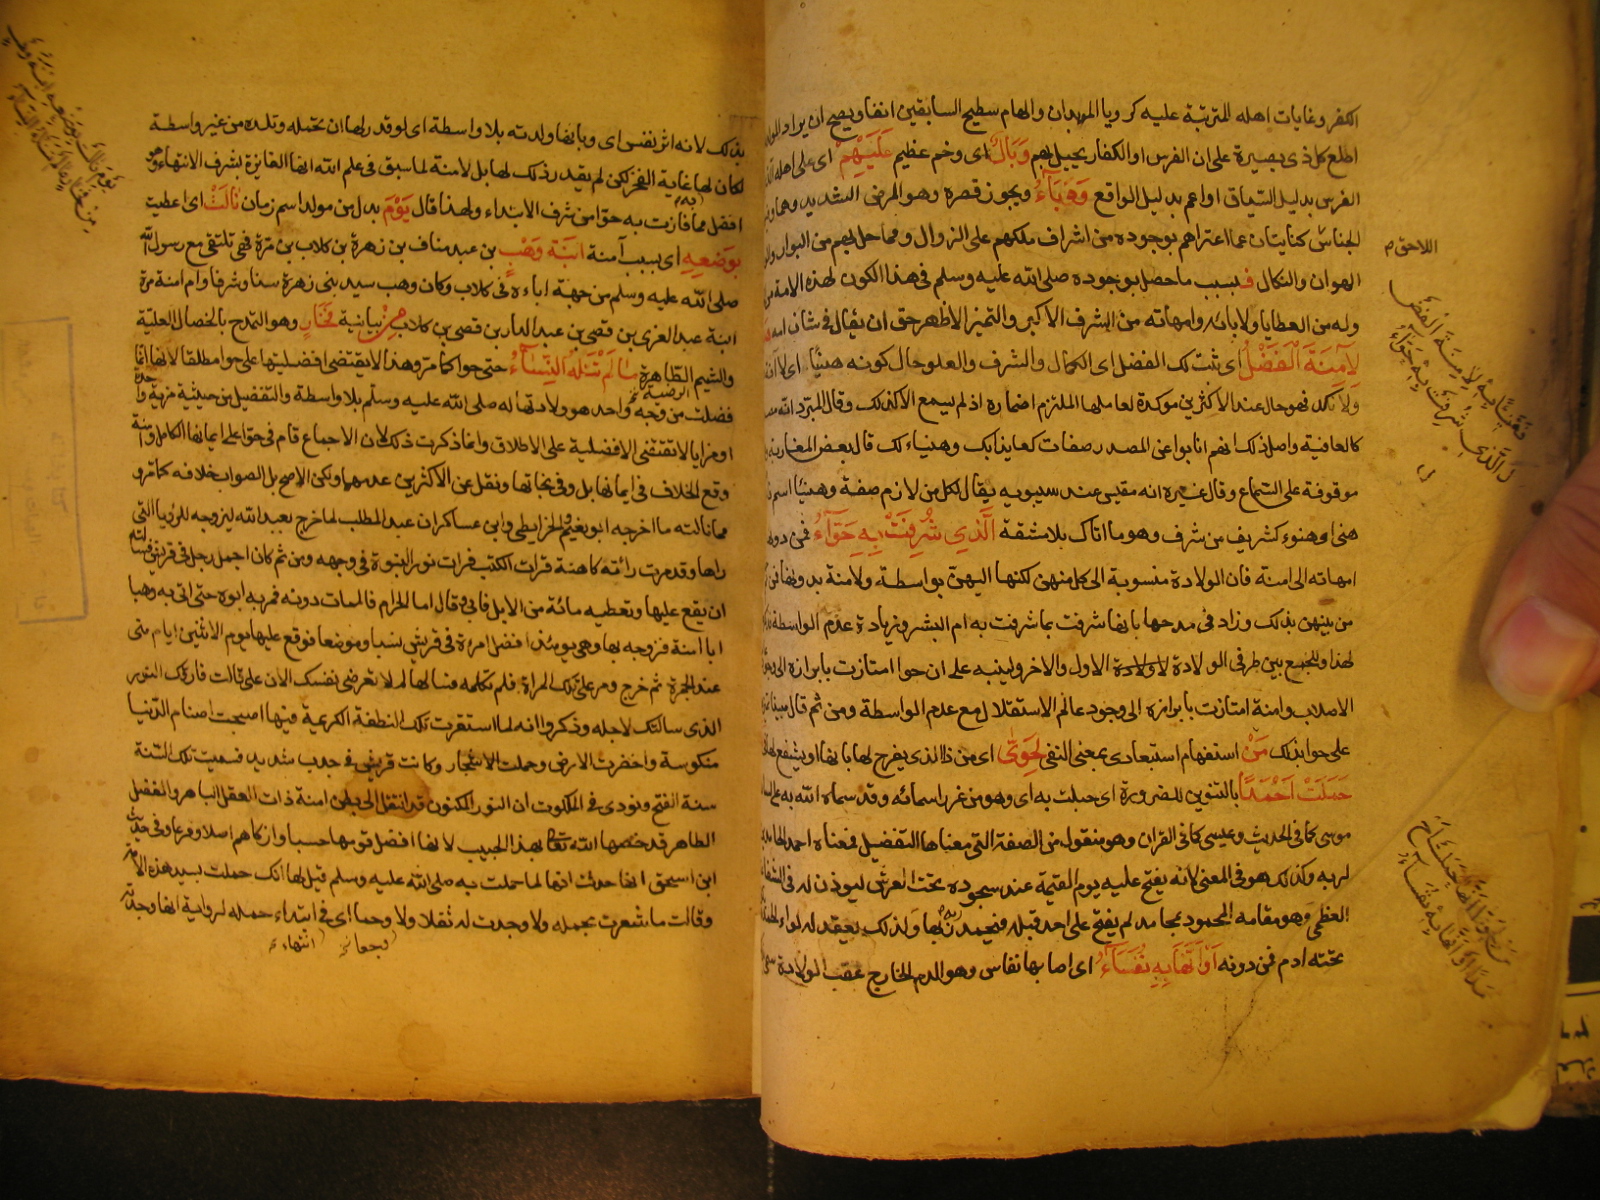 الكفر وغايات اهله المترتبة عليه كرويا الموبدان والهام سطيح السابقين انفا ويصح ان يراد
اطلع كل ذى بصيرة على ان الفرس او الكفار يحيل بهم وَبَالٌ اى وخم عظيم عَلَيْهِمْ اى على اهله
الفرس بدليل السياق او اعم بدليل الواقع وَوَبَآءُ ويجوز قصره وهو المرض الشديد وهما
الجناس كنايتان عما اعتراهم بوجوده من اشراف ملكهم على الزوال ومما حل بهم من البوار
الهوان والنكال فـبسبب ما حصل بوجوده صلى الله عليه وسلم فى هذا الكون لهذه الامة
وله من العطايا ولابائه وامهاته من الشرف الاكبر والتميز الاظهر حق ان يقال فى شان امه
لِآمِنَةَ الْفَضْلُ اى ثبت لك الفضل اى الكمال والشرف والعلو حال كونه هنيئا اى لا
ولا نكد فهو حال عند الاكثرين موكدة لعاملها الملتزم اضماره اذ لم يسمع الا كذلك وقال المبرد
كالعافية واصل ذلك انهم انابوا عن المصدر صفات كعايذا بك وهنياء لك قال بعض المغاربة
موقوفة على السماع وقال غيره انه مقيس عند سيبويه يقال لكل من لازم صفة وهنيئا اسم
هنى او هنوء كشريف من شرف وهو ما اتاك بلا مشقة الَّذِي شُرِّفَتْ بِهِ حَوَّآءُ فمن دونها
امهاته الى امنة فان الولادة منسوبة الى كل منهن لكنها اليهن بواسطة ولامنة بدونها
من بينهن بذلك وزاد فى مدحها بانها شرفت بما شرفت به ام البشر وزيادة عدم الواسطة
لهذا وللجمع بين طرفى الولادة الاول والاخر ولينبه على ان حوا امتازت بابرازه الى
الاصلاب وامنة امتازت بابرازه الى وجود عالم الاستقلال مع عدم الواسطة ومن ثم قال مبينا
على حوا بذلك مَنْ استفهام استبعادى بمعنى النفى لِحَوَّىٰ اى من ذا الذى يفرح لها بانها او يشفع لها
حَمَلَتْ اَحْمَدًا بالتنوين للضرورة اى حبلت به اى وهو من غرر اسمائه وقد سماه الله به على
موسى كما فى الحديث وعيسى كما فى القران وهو منقول من الصفة التى معناها التفضيل فمعناه احمد الحامدين
لربه وكذلك هو فى المعنى لانه يفتح عليه يوم القيمة عند سجوده تحت العرش ليوذن له فى الشفاعة
العظمى وهو مقامه المحمود بمحامد لم يفتح على احد قبله فيحمد ربه بها ولذلك يعقد له لواء الحمد
تحته ادم فمن دونه اَوْ اَنَّهَا بِهِ نُفَسَآءُ اى اصابها نفاس وهو الدم الخارج عقب الولادة
اللاحق م
فَهَنِيًّا بِهِ لِاٰمِنَةَ الْفَضْـ
لُ الَّذِي شُرِّفَتْ بِهِ حَوَّآءُ
مَنْ لِحَوَّآءَ اَنَّهَا حَمَلَتْ اَحْـ
مَدًا اَوْ اَنَّهَا بِهِ نُفَسَآءُ
بذلك لانه اثر نفس اى وبانها ولدته بلا واسطة اى لو قدر لها ان تحمله وتلده من غير واسطة
لكان لها غاية الفخر لكن لم يقدر ذلك لها بل لامنة لما سبق فى علم الله انها الفايزة بشرف الانتهاء وهو
افضل مما فازت به حوا من شرف الابتداء ولهذا قال يَوْمَ بدل من مولد اسم زمان نَالَتْ اى اعطيت
بِوَضْعِهِ اى بسبب آمنة ابْنَةُ وَهْبٍ بن عبد مناف بن زهرة بن كلاب بن مرة فهى تلتقى مع رسول الله
صلى الله عليه وسلم من جهة اباءه فى كلاب وكان وهب سيد بنى زهرة سنا وشرفا وام امنة مرة
ابنة عبد العزى بن قصى بن عبد الدار بن قصى بن كلاب مِنْ بيانية فَخَارٍ وهو التمدح بالخصال العلية
والشيم الظاهرة مَا لَمْ تَنَلْهُ النِّسَآءُ حتى حوا كما مر وهذا لا يقتضى افضليتها على حوا مطلقا لانها انما
فضلت من وجه واحد هو ولادتها له صلى الله عليه وسلم بلا واسطة والتفضيل من حيثية مزية واحدة
او مزايا لا تقتضى الافضلية على الاطلاق وانما ذكرت ذلك لان الاجماع قام فى حوا على ايمانها الكامل وامنة
وقع الخلاف فى ايمانها بل وفى نجاتها ونقل عن الاكثرين عدمهما ولكن الاصح بل الصواب خلافه كما مر و
مما نالته ما اخرجه ابو نعيم والخرايطى وابن عساكر ان عبد المطلب لما خرج بعبد الله ليزوجه للرؤيا التى
راها وقد مرت راته كاهنة قرات الكتب فرات نور النبوة فى وجهه ومن ثم كان اجمل رجل فى قريش فسالته
ان يقع عليها وتعطيه مائة من الابل فابى وقال اما الحرام فالممات دونه فمر به ابوه حتى اتى به وهبا
ابا امنة فزوجه بها وهى يومئذ افضل امرءة فى قريش نسبا وموضعا فوقع عليها يوم الاثنين ايام منى
عند الجمرة ثم خرج ومر على تلك المراة فلم تكلمه فسالها لم لا تعرضى نفسك الان على قالت فارقك النور
الذى سالتك لاجله وذكروا انه لما استقرت تلك النطفة الكريمة فيها اصبحت اصنام الدنيا
منكوسة واخضرت الارض وحملت الاشجار وكانت قريش فى جدب شديد فسميت تلك السنة
سنة الفتح ونودى فى الملكوت ان النور المكنون قد انتقل الى بطن امنة ذات العقل الباهر والفضل
الطاهر قد خصها الله تعالى بهذا الحبيب لانها افضل قومها حسبا وازكاهم اصلا وفرعا وفى حديث
ابن اسحق انها حدثت انها لما حملت به صلى الله عليه وسلم قيل لها انك حملت بسيد هذه الامة
وقالت ما شعرت بحمله ولا وجدت له ثقلا ولا وحما اى فى ابتداء حمله لرواية انها وجدته
انتهاء
يَوْمَ نَالَتْ بِوَضْعِهِ ابْنَةُ وَهْبٍ
مِنْ فَخَارٍ مَا لَمْ تَنَلْهُ النِّسَآءُ